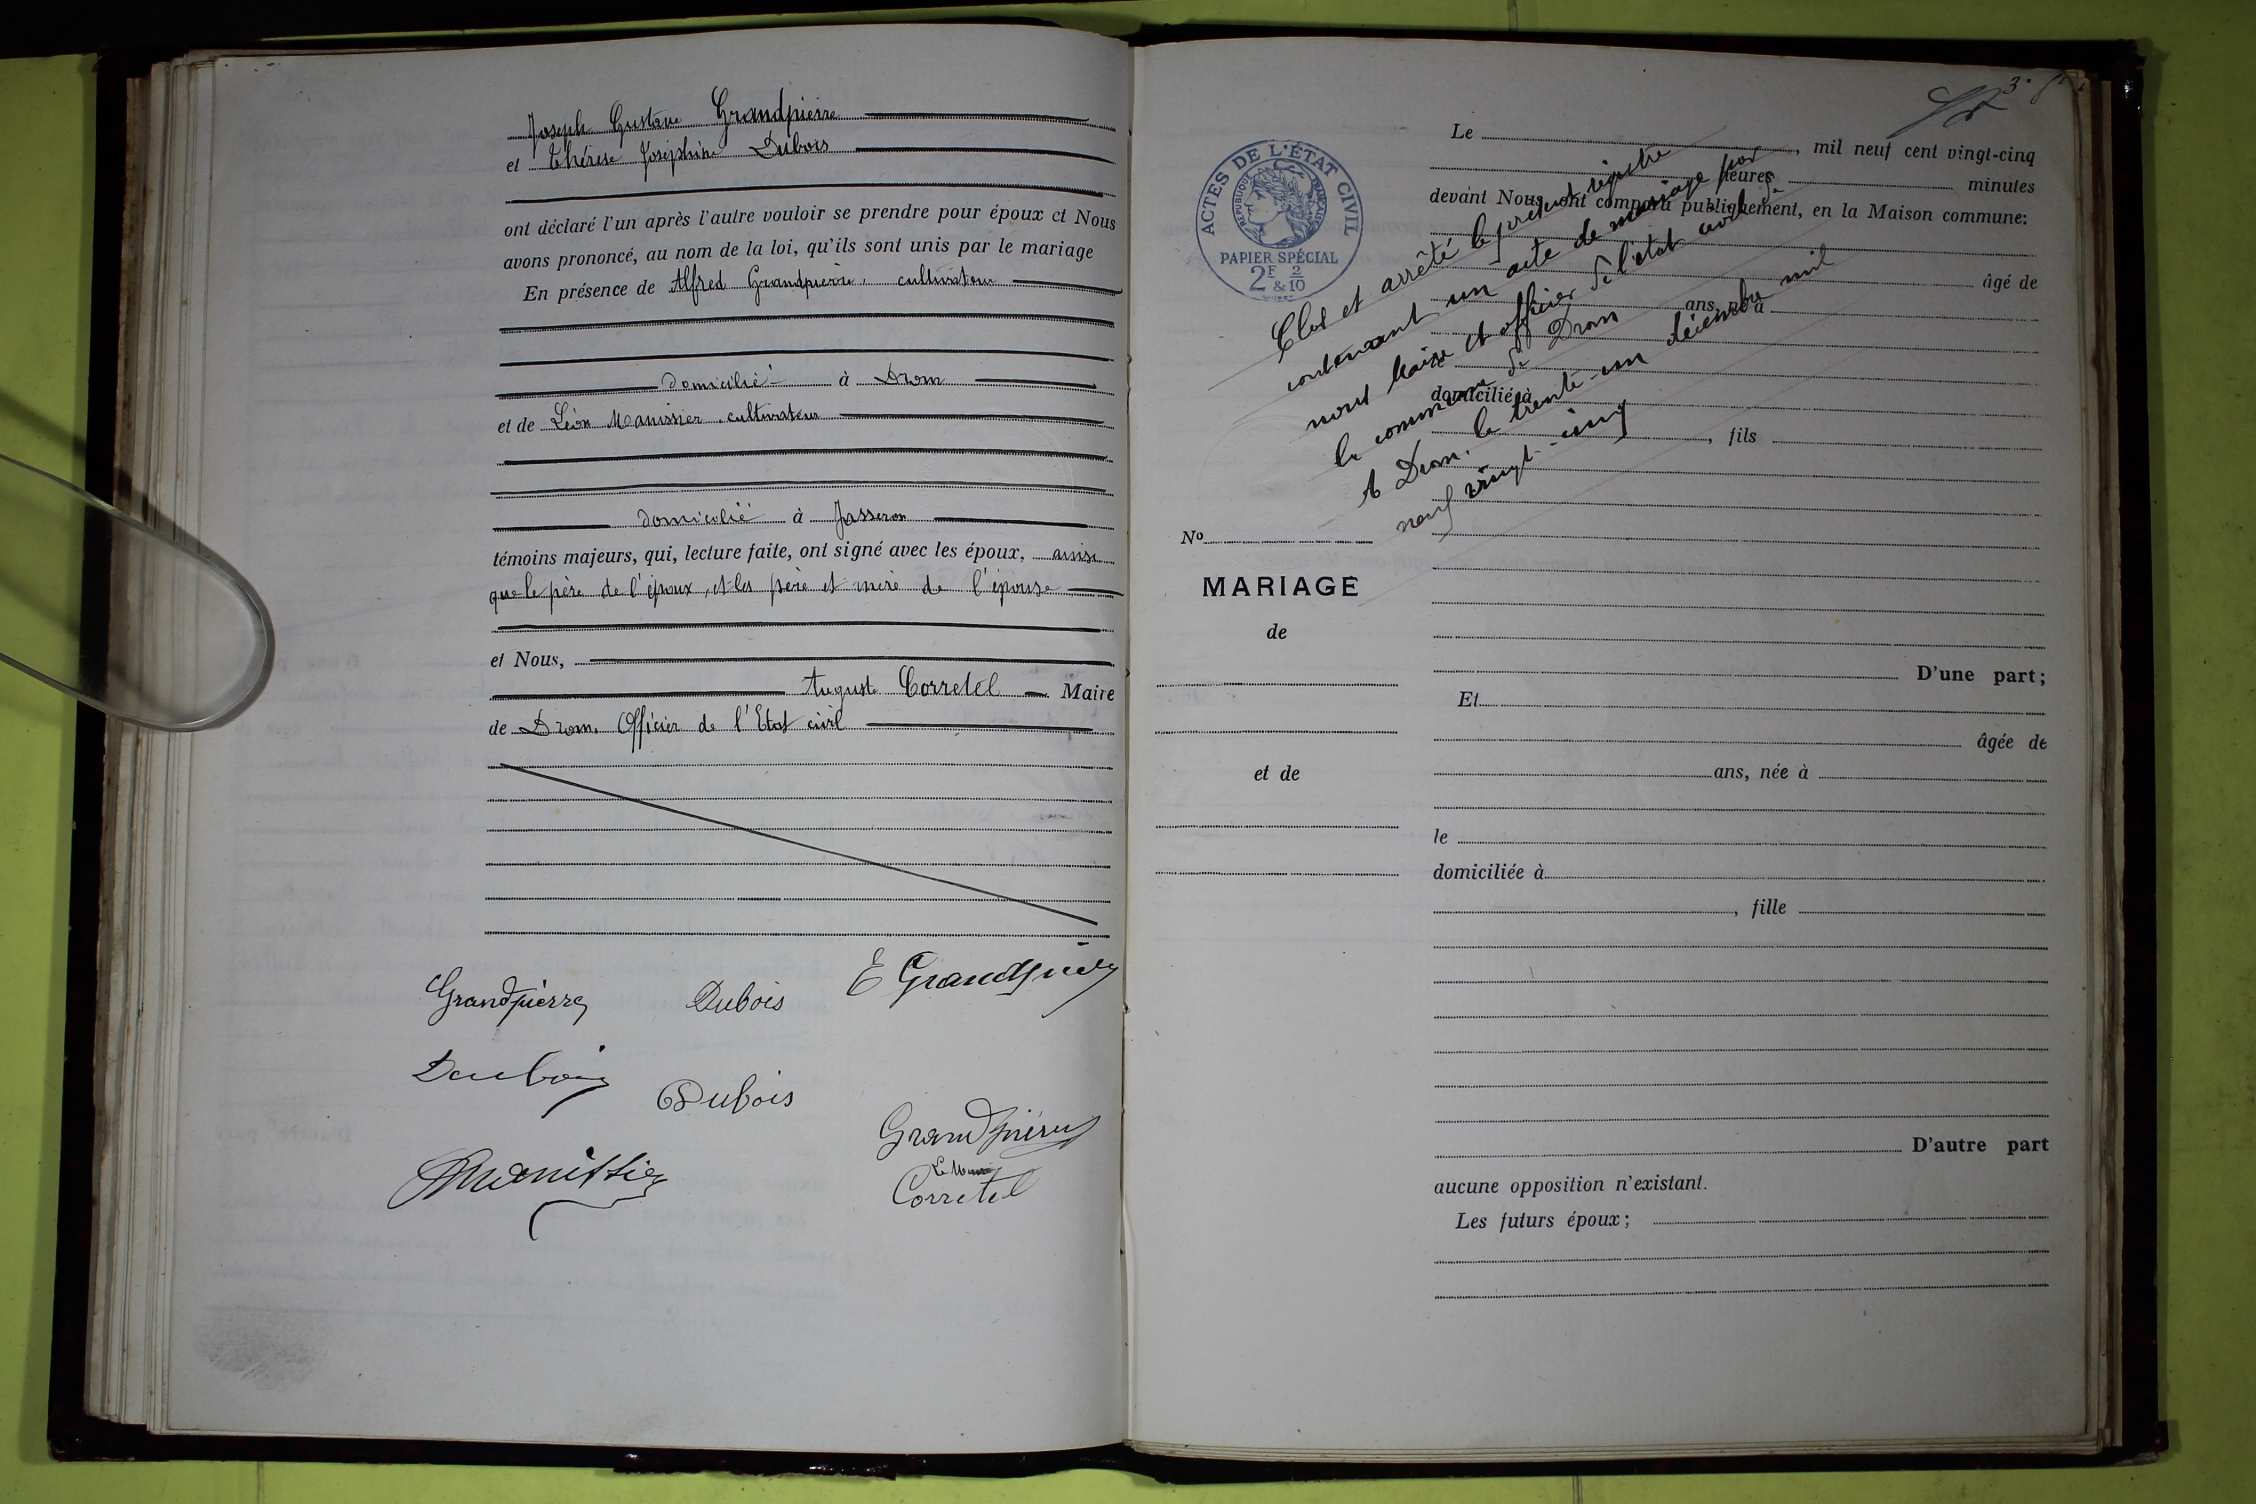 Joseph Gustave Grandpierre
et Thérèse Joséphine Dubois
ont déclaré l'un après l'autre vouloir se prendre pour époux et Nous
avons prononcé, au nom de la loi, qu'ils sont unis par le mariage
En présence de Alfred Grandpierre, cultivateur
domicilié à Drom
et de Léon Manissier, cultivateur
domicilié à Jasseron
témoins majeurs, qui, lecture faite, ont signé avec les époux, ainsi
que le père de l'époux, et les père et mère de l'épouse
et Nous,
Auguste Corretel Maire
de Drom, Officier de l'Etat civil
Grandpierre Dubois E Grandpierre
Dubois
Dubois
Grandpierre
Manissier
Le Maire
Corretel
3e
ACTES DE L'ÉTAT CIVIL
RÉPUBLIQUE FRANÇAISE
PAPIER SPÉCIAL
2F & 2/10
Clos et arrêté le présent registre
contenant un acte de mariage par
nous maire et officier de l'état civil de
la commune de Drom
A Drom, le trente-un décembre mil
neuf vingt-cinq
Le , mil neuf cent vingt-cinq
heures minutes
devant Nous ont comparu publiquement, en la Maison commune:
âgé de
ans, né à
domicilié à
, fils
No
MARIAGE
de
et de
D'une part;
Et
âgée de
ans, née à
le
domiciliée à
, fille
D'autre part
aucune opposition n'existant.
Les futurs époux;